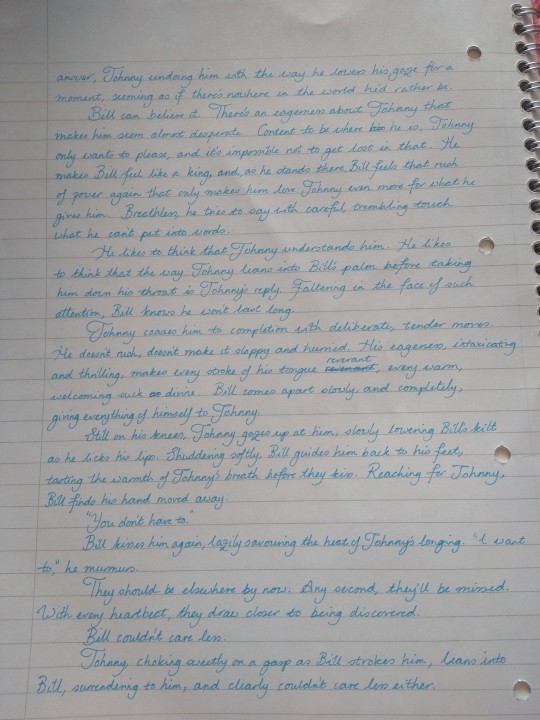 answer, Johnny undoing him with the way he lowers his gaze for a
moment, seeming as if there's nowhere in the world he'd rather be.
Bill can believe it. There's an eagerness about Johnny that
makes him seem almost desperate. Content to be where he is, Johnny
only wants to please, and it's impossible not to get lost in that. He
makes Bill feel like a king, and, as he stands there, Bill feels that rush
of power again that only makes him love Johnny even more for what he
gives him. Breathless, he tries to say with careful, trembling touch
what he can't put into words.
He likes to think that Johnny understands him. He likes
to think that the way Johnny leans into Bill's palm before taking
him down his throat is Johnny's reply. Faltering in the face of such
attention, Bill knows he won't last long.
Johnny coaxes him to completion with deliberate, tender moves.
He doesn't rush, doesn't make it sloppy and hurried. His eagerness, intoxicating
reverant
and thrilling, makes every stroke of his tongue, every warm,
welcoming suck divine. Bill comes apart slowly and completely,
giving everything of himself to Johnny.
Still on his knees, Johnny gazes up at him, slowly lowering Bill's kilt
as he licks his lips. Shuddering softly, Bill guides him back to his feet,
tasting the warmth of Johnny's breath before they kiss. Reaching for Johnny,
Bill finds his hand moved away.
"You don't have to."
Bill kisses him again, lazily savouring the heat of Johnny's longing. "I want
to," he murmurs.
They should be elsewhere by now. Any second, they'll be missed.
With every heartbeat, they draw closer to being discovered.
Bill couldn't care less.
Johnny, choking sweetly on a gasp as Bill strokes him, leans into
Bill, surrendering to him, and clearly couldn't care less either.